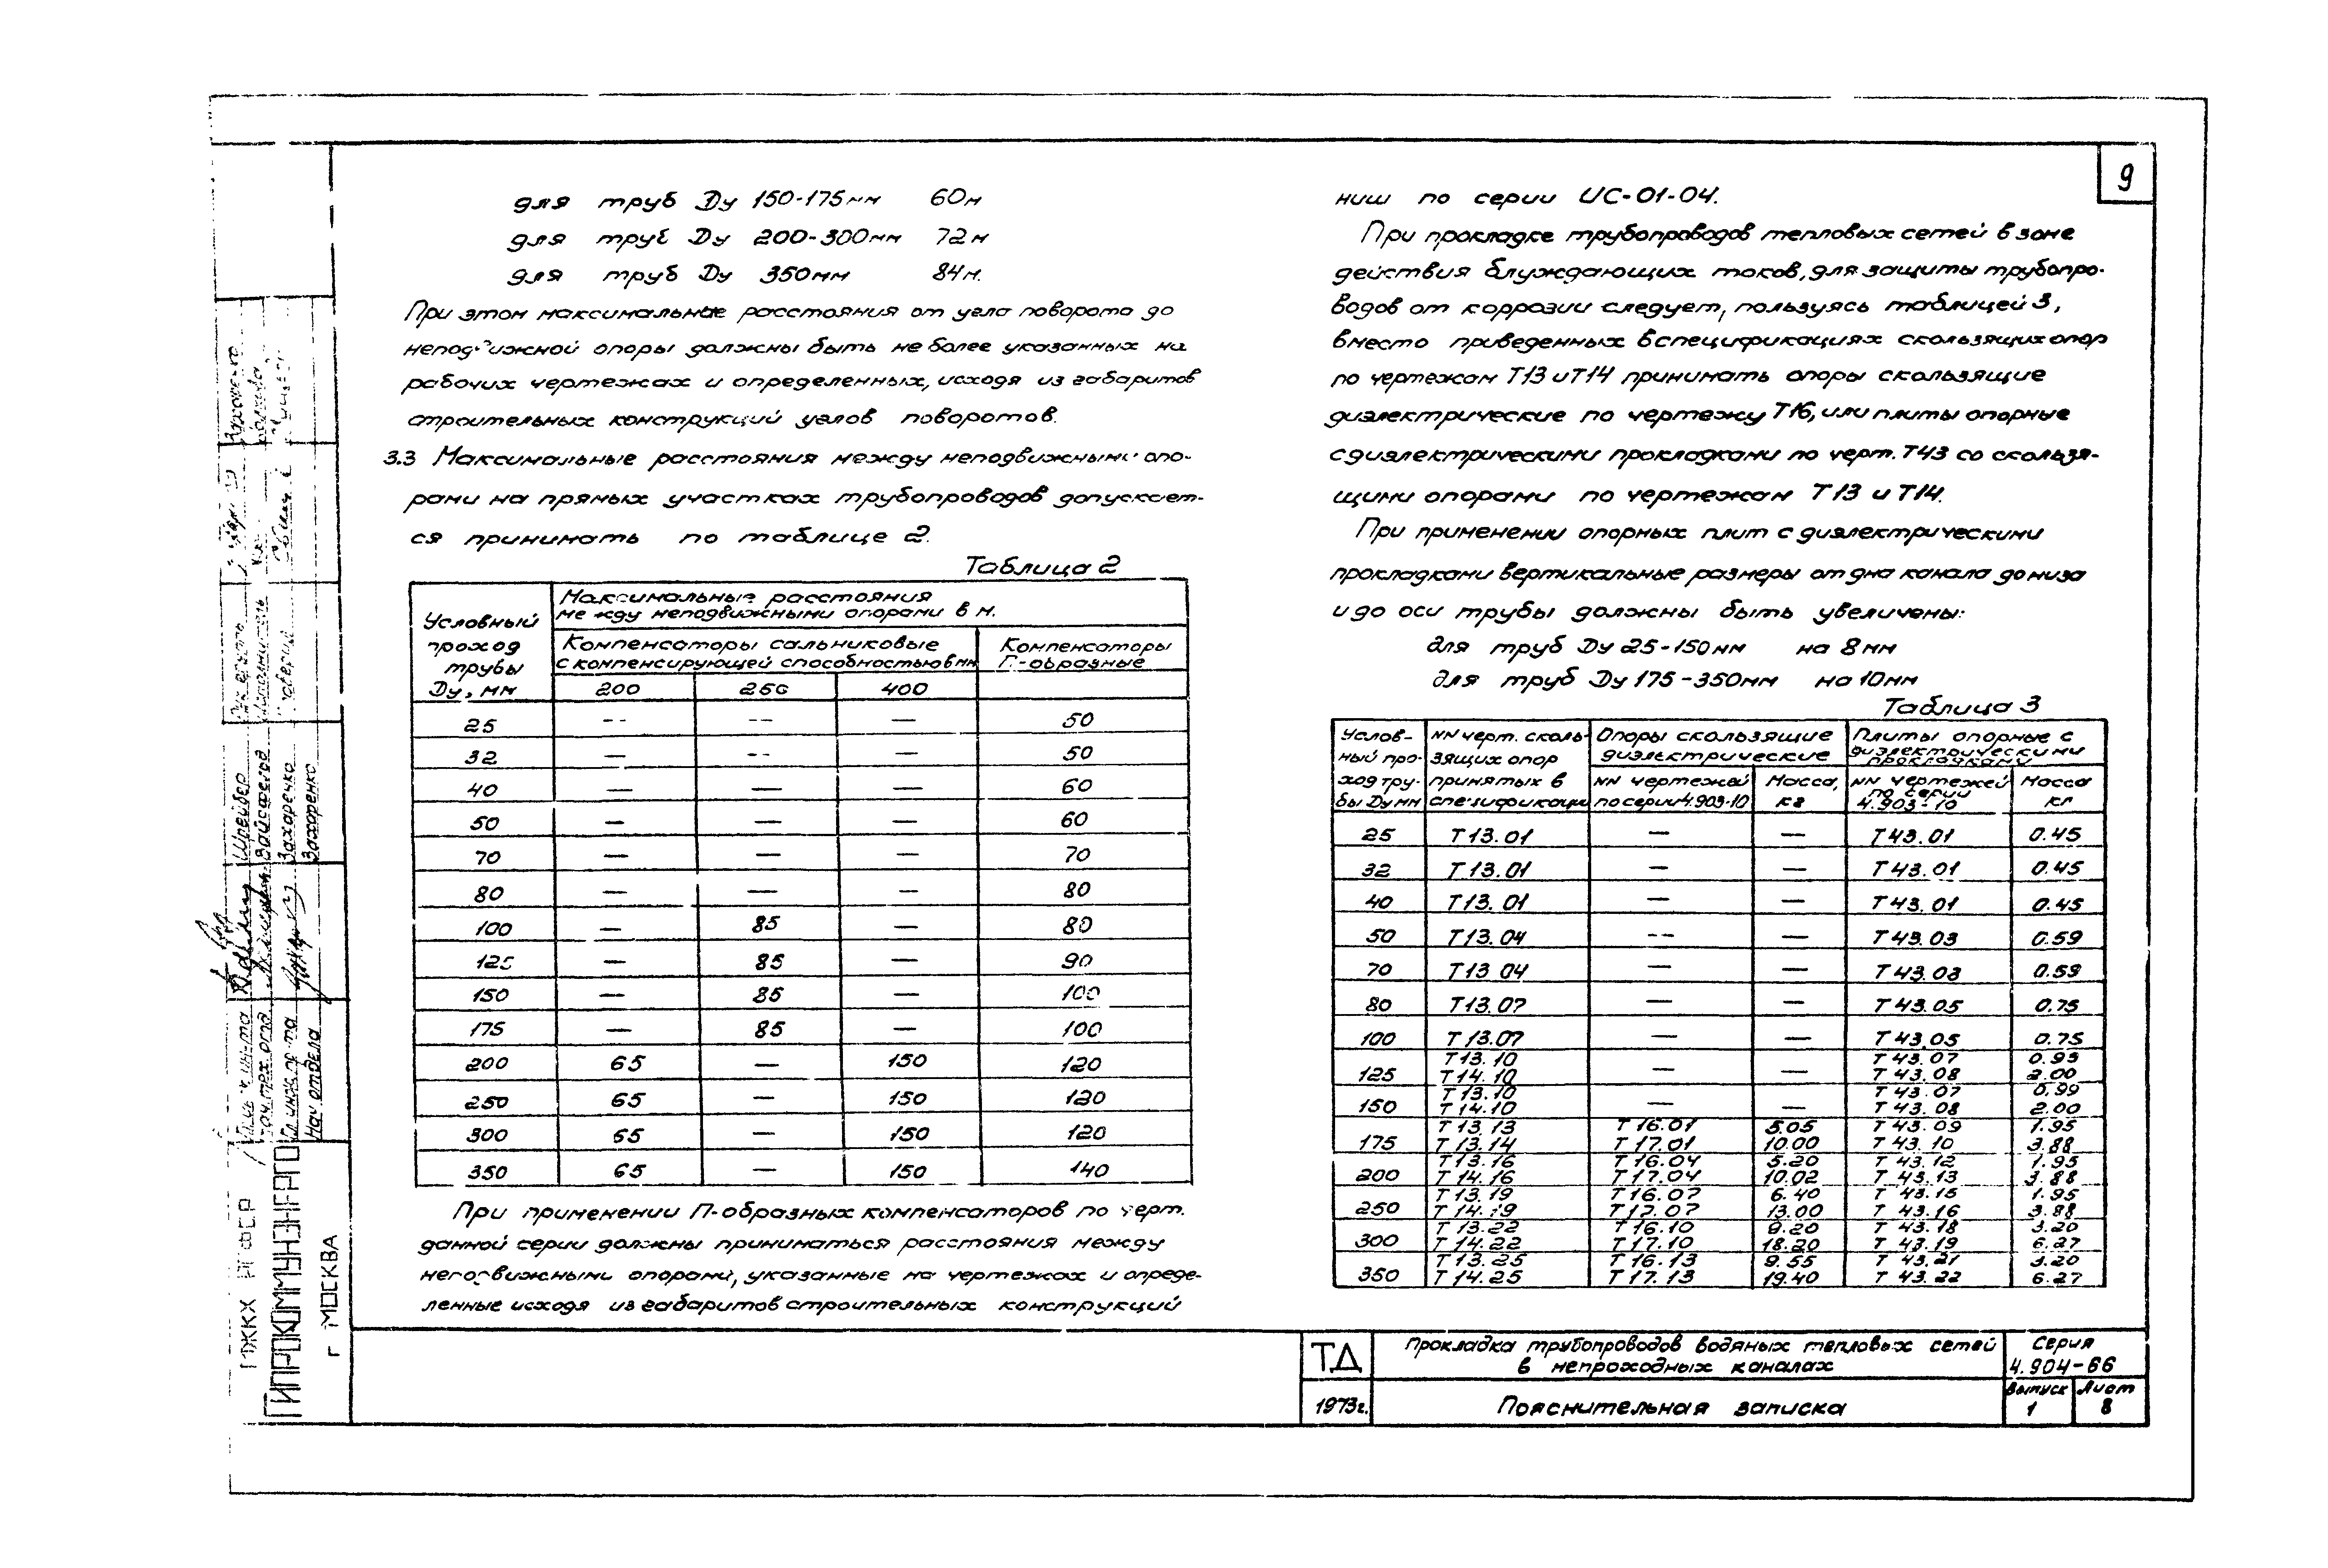 9
для труб Ду 150-175мм 60м
для труб Ду 200-300мм 72м
для труб Ду 350мм 84м.
При этом максимальные расстояния от угла поворота до
неподвижной опоры должны быть не более указанных на
рабочих чертежах и определенных, исходя из габаритов
строительных конструкций углов поворотов.
3.3 Максимальные расстояния между неподвижными опо-
рами на прямых участках трубопроводов допускает-
ся принимать по таблице 2.
Таблица 2
Условный проход трубы Ду, мм
Максимальные расстояния
между неподвижными опорами в м.
Компенсаторы сальниковые
с компенсирующей способностью в мм
Компенсаторы
П-образные
200 250 400
25 -- -- — 50
32 — -- — 50
40 — — — 60
50 — — — 60
70 — — — 70
80 — — — 80
100 — 85 — 80
125 — 85 — 90
150 — 85 — 100
175 — 85 — 100
200 65 — 150 120
250 65 — 150 120
300 65 — 150 120
350 65 — 150 140
При применении П-образных компенсаторов по черт.
данной серии должны приниматься расстояния между
неподвижными опорами, указанные на чертежах и опреде-
ленные исходя из габаритов строительных конструкций
ниш по серии ИС-01-04.
При прокладке трубопроводов тепловых сетей в зоне
действия блуждающих токов, для защиты трубопро-
водов от коррозии следует, пользуясь таблицей 3,
вместо приведенных в спецификациях скользящих опор
по чертежам Т13 и Т14 принимать опоры скользящие
диэлектрические по чертежу Т16, или плиты опорные
с диэлектрическими прокладками по черт. Т43 со скользя-
щими опорами по чертежам Т13 и Т14.
При применении опорных плит с диэлектрическими
прокладками вертикальные размеры от дна канала до низа
и до оси трубы должны быть увеличены:
для труб Ду 25-150мм на 8мм
для труб Ду 175-350мм на 10мм
Таблица 3
Услов-
ный про-
ход тру-
бы Ду мм
NN черт. сколь-
зящих опор
принятых в
спецификации
Опоры скользящие
диэлектрические
NN чертежей
по серии 4.903-10
Масса,
кг
Плиты опорные с
диэлектрическими
прокладками
NN чертежей
по серии
4.903-10
Масса
кг
25 Т13.01 — — Т43.01 0.45
32 Т13.01 — — Т43.01 0.45
40 Т13.01 — — Т43.01 0.45
50 Т13.04 -- — Т43.03 0.59
70 Т13.04 — — Т43.03 0.59
80 Т13.07 — — Т43.05 0.75
100 Т13.07 — — Т43.05 0.75
Т13.10 Т43.07 0.99
125 Т14.10 — — Т43.08 2.00
Т13.10 Т43.07 0.99
150 Т14.10 — — Т43.08 2.00
Т13.13 Т16.01 5.05 Т43.09 1.95
175 Т13.14 Т17.01 10.00 Т43.10 3.88
Т13.16 Т16.04 5.20 Т43.12 1.95
200 Т14.16 Т17.04 10.02 Т43.13 3.88
Т13.19 Т16.07 6.40 Т43.15 1.95
250 Т14.19 Т17.07 13.00 Т43.16 3.88
Т13.22 Т16.10 9.20 Т43.18 3.20
300 Т14.22 Т17.10 18.20 Т43.19 6.27
Т13.25 Т16.13 9.55 Т43.21 3.20
350 Т14.25 Т17.13 19.40 Т43.22 6.27
ТД
Прокладка трубопроводов водяных тепловых сетей
в непроходных каналах
Серия
4.904-66
1973г.
Пояснительная записка
Выпуск
1
Лист
8
МЖКХ РСФСР
ГИПРОКОММУНЭНЕРГО
г МОСКВА
Нач отдела
Шрейбер
Вайсфельд
Захаренко
Захаренко